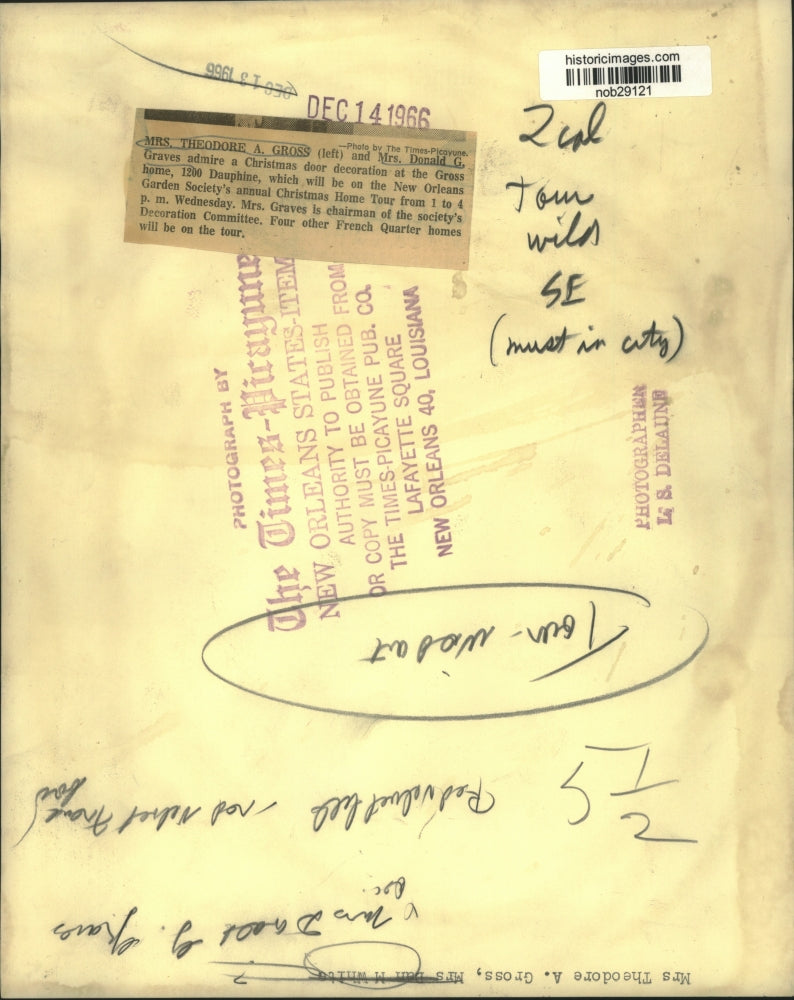 historicimages.com
nob29121
DEC 13 1966
DEC 14 1966
2 col
Tour
wild
SE
(must in city)
—Photo by The Times-Picayune.
MRS. THEODORE A. GROSS (left) and Mrs. Donald G.
Graves admire a Christmas door decoration at the Gross
home, 1200 Dauphine, which will be on the New Orleans
Garden Society's annual Christmas Home Tour from 1 to 4
p. m. Wednesday. Mrs. Graves is chairman of the society's
Decoration Committee. Four other French Quarter homes
will be on the tour.
PHOTOGRAPH BY
The Times-Picayune
NEW ORLEANS STATES-ITEM
AUTHORITY TO PUBLISH
OR COPY MUST BE OBTAINED FROM
THE TIMES-PICAYUNE PUB. CO.
LAFAYETTE SQUARE
NEW ORLEANS 40, LOUISIANA
PHOTOGRAPHER
L. S. DELAUNE
Tour - wild art
Red velvet bell - red velvet
Mrs Donald G. Graves
Mrs Theodore A. Gross, Mrs Dan M White